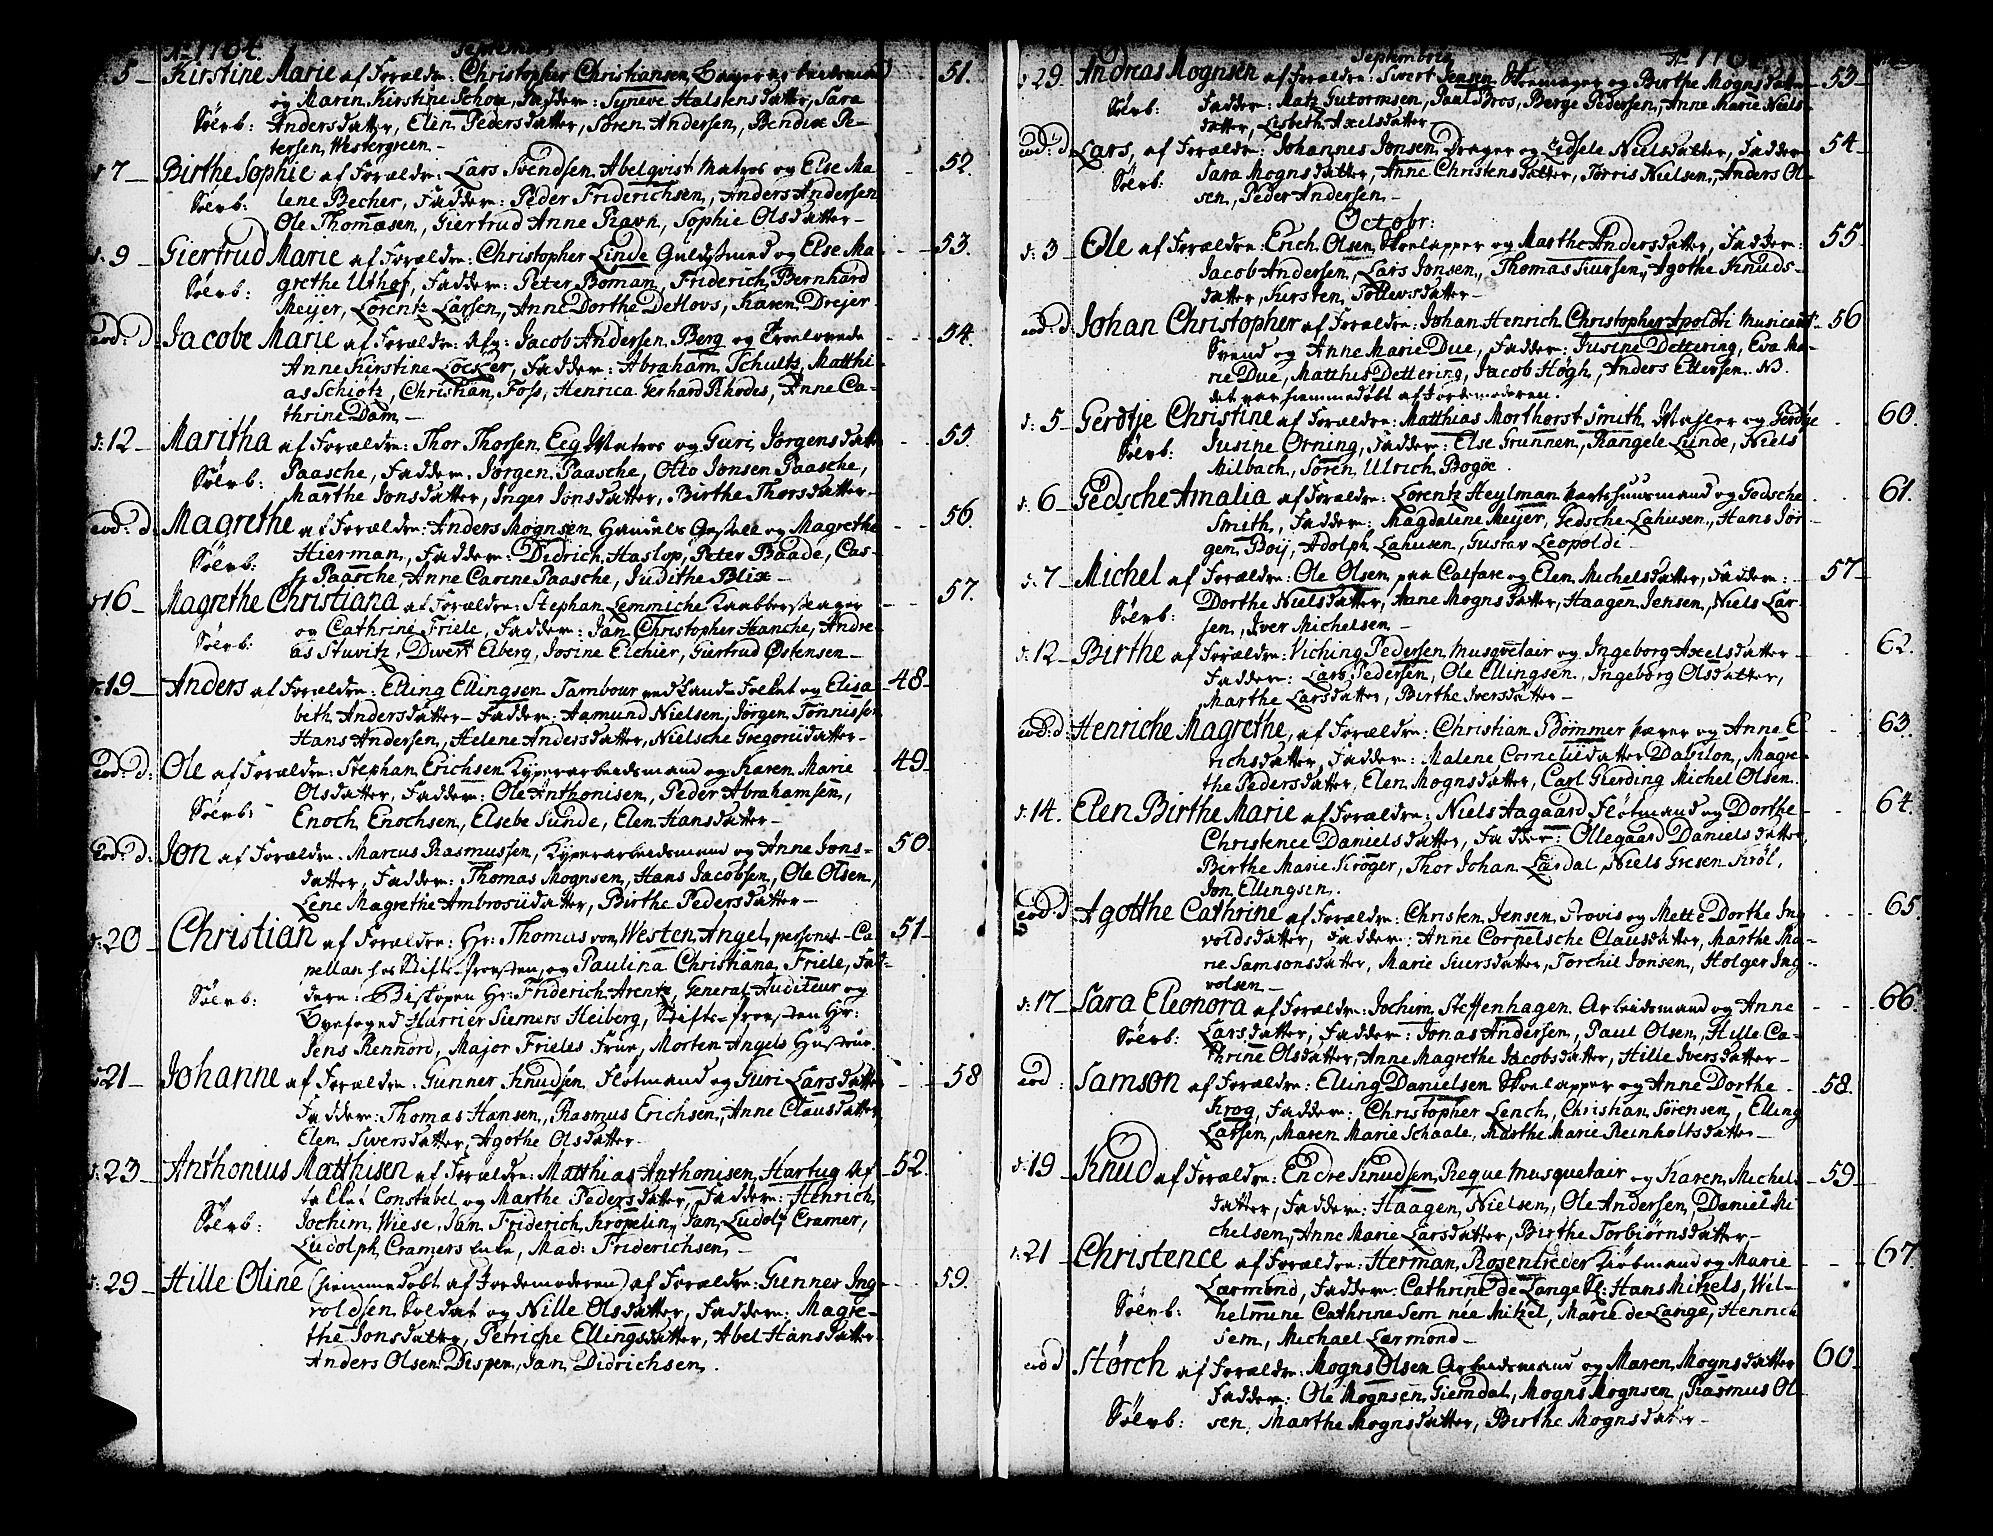 Ao 1764. Septembris
5 Kirstine Marie af Forældre: Christopher Christiansen Arbeidsmand 51.
og Maren Kirstine Schou, Faddere: Syneve Halstensdatter, Sara
Sölvb: Andersdatter, Elen Pedersdatter, Sören Andersen, Bendix Pe-
tersen Westergreen
d: 7 Birthe Sophie af Forældre: Lars Svendsen Abelqvist Matros og Else Ma 52.
Sölvb: lene Becher, Faddere: Peder Friderichsen, Anders Andersen
Ole Thomasen, Giertrud Anne Ravn, Sophie Olsdatter
d: 9 Giertrud Marie af Forældre: Christopher Linde Guldsmed og Else Ma 53.
Sölvb: grethe Uthof, Faddere: Peter Boman, Friderich Bernhard
Meyer, Lorentz Larsen, Anne Dorthe Detlovs, Karen Drejer
eod: d: Jacobe Marie af Forældre: Afg: Jacob Andersen Berg og Troelovede 54.
Anne Kirstine Löcker, Faddere: Abraham Schultz, Matthi
as Schiötz, Christian Foss, Henrica Gerhard Rhodes, Anne Ca-
thrine Dam
d: 12 Maritha af Forældre: Thor Thorsen Eeg Matros og Guri Jörgensdatter 55.
Sölvb: Paasche, Faddere: Jörgen Paasche, Otto Jonsen Paasche,
Marthe Jonsdatter, Inger Jonsdatter, Birthe Thorsdatter
eod: d: Magrethe af Forældre: Anders Mognsen Handels Gesell og Magrethe 56.
Sölvb: Hierman, Faddere: Didrich Haslop, Peter Baade, Cas-
Paasche, Anne Carine Paasche, Judithe Blix
d: 16 Magrethe Christiana af Forældre: Stephan Lemmiche Kaabberslager 57.
Sölvb: og Cathrine Friele, Faddere: Jan Christopher Hanche, Andre
as Stuvitz, Divert Elberg, Josine Eichier, Giertrud Östensen
d: 19 Anders af Forældre: Elling Ellingsen Tambour ved Land-Folket og Elisa 48
beth Andersdatter Faddere: Aamund Nielsen, Jörgen Tönnissen
Hans Andersen, Helene Andersdatter, Nielsche Gregoriidatter
eod: d: Ole af Forældre: Stephan Erichsen Kyperarbeidsmand og Karen Marie 49
Olsdatter, Faddere: Ole Anthonisen, Peder Abrahamsen,
Sölvb: Enoch Enochsen, Elsebe Sunde, Elen Hansdatter
eod: d: Jon af Forældre: Marcus Rasmussen, Kyperarbeidsmand og Anne Jons- 50.
datter, Faddere: Thomas Mognsen, Hans Jacobsen, Ole Olsen,
Lene Magrethe Ambrosiidatter, Birthe Pedersdatter
d: 20 Christian af Forældre: Hr: Thomas von Westen Angel, personel-Ca- 51
pellan hos Stifts-Provsten, og Paulina Christiana Friele, Fad-
Sölvb: dere: Biskopen Hr: Friderich Arentz, General Auditeur og
Byefoged Harrier Siemers Heiberg, Stifts-Provsten Hr:
Jens Rennord, Major Frieles Frue, Morten Angels Hustrue
d: 21 Johanne af Forældre: Gunner Knudsen, Flötmand og Guri Larsdatter 58
Faddere: Thomas Hansen, Rasmus Erichsen, Anne Clausdatter
Elen Siversdatter, Agothe Olsdatter
d: 23 Anthoneus Matthisen af Forældre: Matthias Anthonisen Hartug Af 52.
Constabel og Marthe Pedersdatter, Faddere: Henrich
Sölvb: Jochim Wiese, Jan Friderich Kröpelin, Jan Ludolf Cramer,
Ludolph Cramers Enke, Mad: Friderichsen
d: 29 Hille Oline (hiemmedöbt af Jordemoderen) af Forældre: Gunner Ing 59.
voldsen Soldat og Nille Olsdatter, Faddere: Magre-
the Jonsdatter, Petriche Ellingsdatter, Abel Hansdatter
Anders Olsen Dispen, Jan Didrichsen.
Septembris Ao 1764
d: 29. Andreas Mognsen af Forældre: Sivert Jensen Skomager og Birthe Mognsdatter 53
Sölvb: Faddere: Matz Gutormsen, Paul Bros, Berge Pedersen, Anne Marie Niels-
datter, Lisbeth Axelsdatter
eod: d: Lars, af Forældre: Johannes Jonsen Drager og Zidsele Nielsdatter, Faddere 54
Sölvb: Sara Mognsdatter, Anne Christensdatter, Torris Nielsen, Anders Ol-
sen, Peder Andersen
Octobr:
d: 3 Ole af Forældre: Erich Olsen Skoelapper og Marthe Andersdatter, Faddere: 55
Jacob Andersen, Lars Jonsen, Thomas Siursen, Agothe Knuds-
datter, Kirsten Tollevsdatter
eod: d Johan Christopher af Forældre: Johan Henrich Christopher Apoldi Musicant- 56
Svend og Anne Marie Due, Faddere: Jusine Dettering, Eva Ma-
rie Due, Matthis Dettering, Jacob Högh, Anders Ellersen. NB.
det var hiemmedöbt af Jordemoderen.
d: 5 Gerdtje Christine af Forældre: Matthias Morthorst Smith, Mæsler og Gerdtje 60.
Sölvb: Jusine Orning, Faddere: Else Grunnen, Rangele Lunde, Niels
Milbach, Sören Ulrich Bogöe
d: 6 Gedsche Amalia af Forældre: Lorentz Heylman Kartehuusmand og Gedsche 61.
Smith, Faddere: Magdalene Meijer, Gedsche Lahusen, Hans Jör
gen Boij, Adolph Lahusen, Gustav Leopoldi
d: 7 Michel af Forældre: Ole Olsen paa Calfare og Elen Michelsdatter, Faddere: 57
Sölvb: Dorthe Nielsdatter, Anne Mognsdatter, Haagen Jensen, Niels Lar-
sen, Iver Michelsen
d: 12 Birthe af Forældre: Viching Pedersen Musqvetair og Ingeborg Axelsdatter 62.
Faddere: Lars Pedersen, Ole Ellingsen, Ingeborg Olsdatter,
Marthe Larsdatter, Birthe Iversdatter
eod: d: Henriche Magrethe, af Forældre: Christian Bömmer Farver og Anne E 63.
richsdatter, Faddere: Malene Corneliidatter Dabilon, Magre-
the Pedersdatter, Elen Mognsdatter, Carl Gierding Michel Olsen.
d: 14. Elen Birthe Marie af Forældre: Niels Aagaard Flötmand og Dorthe 64.
Christence Danielsdatter, Faddere: Ollegaard Danielsdatter
Birthe Marie Kröger, Thor Johan Lärdal, Niels Gresen Kröl,
Jon Ellingsen.
eod: d Agotthe Cathrine af Forældre: Christen Jensen Provis og Mette Dorthe Ing 65.
voldsdatter, Faddere: Anne Cornelsche Clausdatter, Marthe Ma-
rie Samsonsdatter, Marie Siursdatter, Torchil Jonsen, Holger Ing
volsen
d: 17 Sara Eleonora af Forældre: Jochim Steffenhagen Arbeidsmand og Anne 66.
Sölvb: Larsdatter, Faddere: Jonas Andersen, Paul Olsen, Hille Ca-
thrine Olsdatter, Anne Magrethe Jacobsdatter, Hille Iversdatter
eod: Samson af Forældre: Elling Danielsen Skoelapper og Anne Dorthe 58.
Krog, Faddere: Christopher Lench, Christian Sörensen, Elling
Larsen, Maren Marie Schaale, Marthe Marie Reinholtsdatter
d: 19 Knud af Forældre: Endre Knudsen Reque Musquetair og Karen Michels 59
datter, Faddere: Haagen Nielsen, Ole Andersen, Daniel Mi
chelsen, Anne Marie Larsdatter, Birthe Torbiörnsdatter
d: 21 Christence af Forældre: Herman Rosentreder Kiöbmand og Marie 67.
Lærmond, Faddere: Cathrine de Lange Hans Mitzels, Wil-
Sölvb: helmine Cathrine Sem née Mitzel, Marie de Lange, Henrich
Sem, Michael Lærmond
eod d Störch af Forældre: Mogns Olsen Arbeidsmand og Maren Mognsdatter 60.
Faddere: Ole Mognsen Giemdal, Mogns Mognsen, Rasmus Ol-
Sölvb: sen, Marthe Mognsdatter, Birthe Mognsdatter